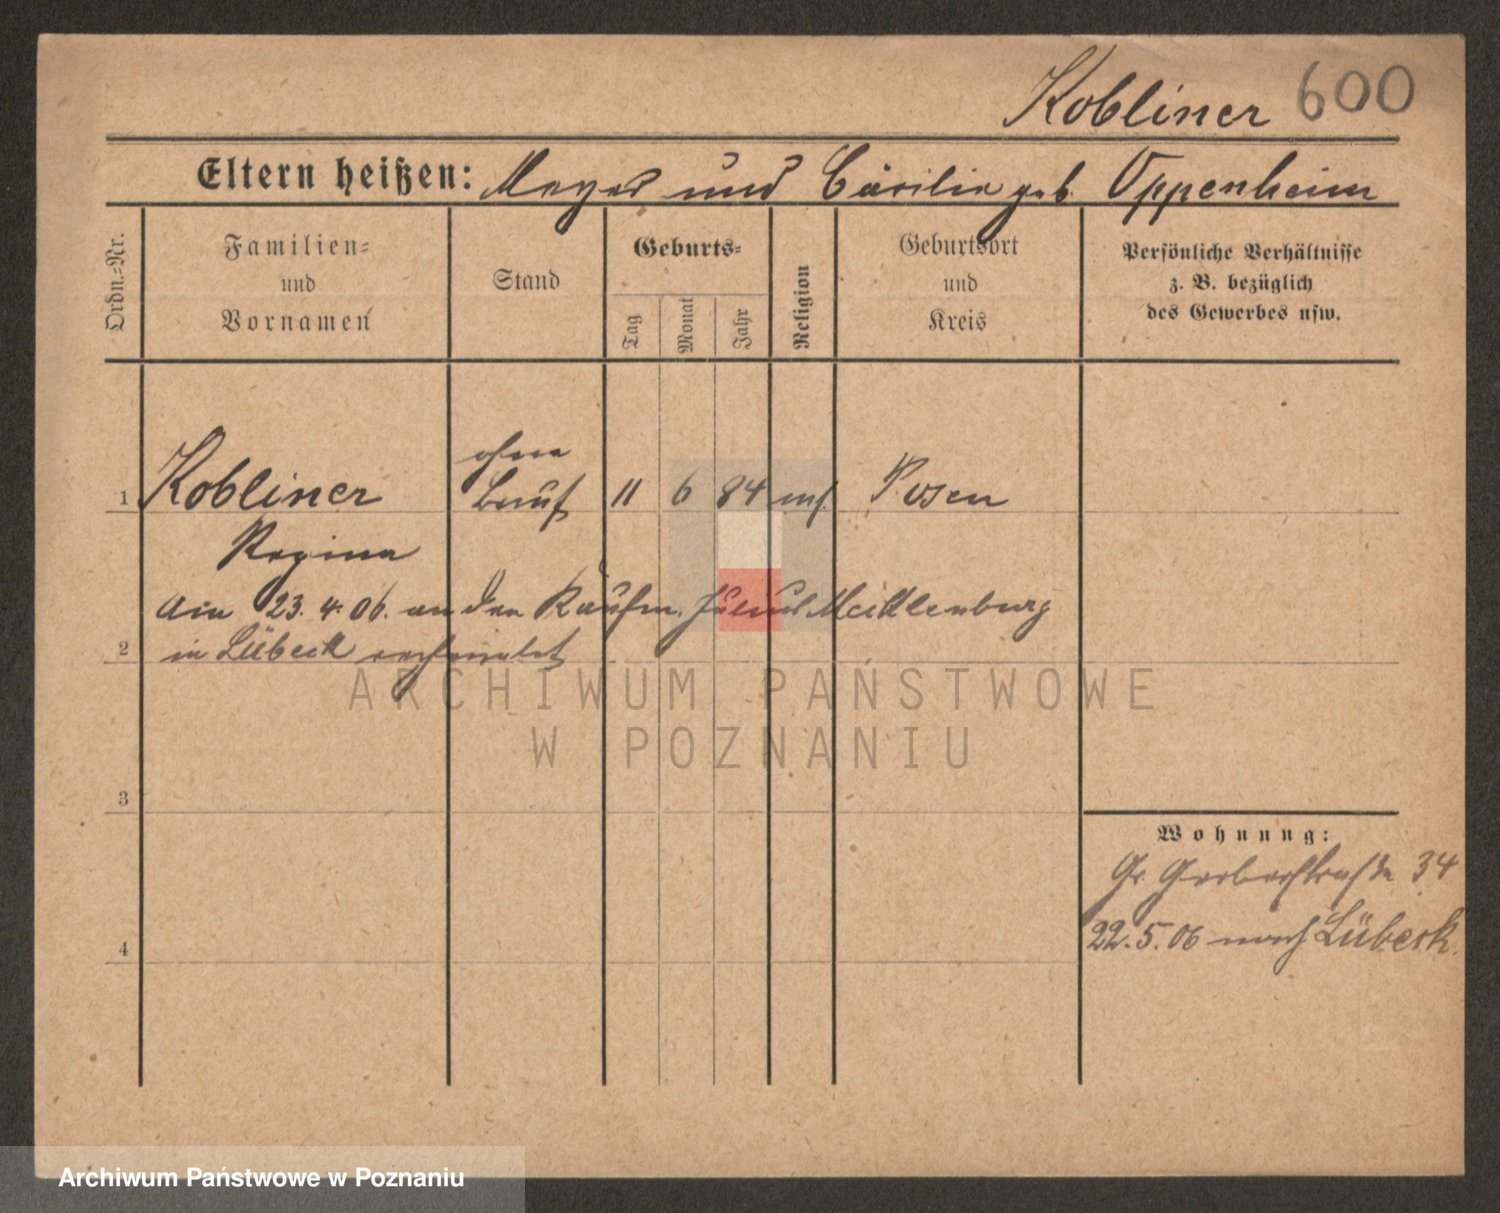 Kobliner 600
Eltern heißen: Meyer und Cäcilie geb. Oppenheim
Ordn.-Nr.
Familien-
und
Vornamen
Stand
Geburts-
Tag
Monat
Jahr
Religion
Geburtsort
und
Kreis
Persönliche Verhältnisse
z. B. bezüglich
des Gewerbes usw.
ohne
1 Kobliner Beruf 11 6 84 mos. Posen
Regina
Am 23. 4. 06. an den Kaufm. Julius Mecklenburg
2 in Lübeck verheiratet
ARCHIWUM PAŃSTWOWE
W POZNANIU
3
Wohnung:
Gr. Gerberstraße 34
22. 5. 06 nach Lübeck.
4
Archiwum Państwowe w Poznaniu